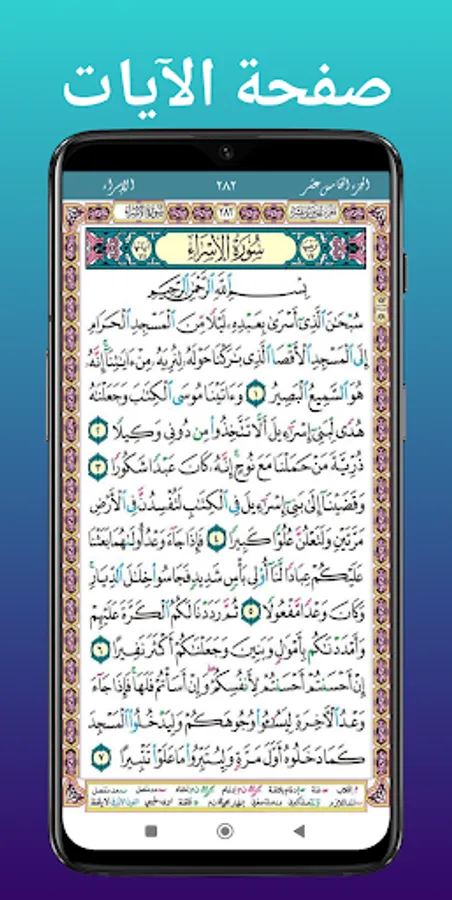 صفحة الآيات
الجزء الخامس عشر ٢٨٢ الإسراء
٢٨٢ سُورَةُ الإِسْرَاءِ
سُورَةُ الإِسْرَاءِ
بِسْمِ ٱللَّهِ ٱلرَّحْمَٰنِ ٱلرَّحِيمِ
سُبْحَٰنَ ٱلَّذِىٓ أَسْرَىٰ بِعَبْدِهِۦ لَيْلًا مِّنَ ٱلْمَسْجِدِ ٱلْحَرَامِ
إِلَى ٱلْمَسْجِدِ ٱلْأَقْصَا ٱلَّذِى بَٰرَكْنَا حَوْلَهُۥ لِنُرِيَهُۥ مِنْ ءَايَٰتِنَآ إِنَّهُۥ
هُوَ ٱلسَّمِيعُ ٱلْبَصِيرُ ١ وَءَاتَيْنَا مُوسَى ٱلْكِتَٰبَ وَجَعَلْنَٰهُ
هُدًى لِّبَنِىٓ إِسْرَٰٓءِيلَ أَلَّا تَتَّخِذُوا۟ مِن دُونِى وَكِيلًا ٢
ذُرِّيَّةَ مَنْ حَمَلْنَا مَعَ نُوحٍ إِنَّهُۥ كَانَ عَبْدًا شَكُورًا ٣
وَقَضَيْنَآ إِلَىٰ بَنِىٓ إِسْرَٰٓءِيلَ فِى ٱلْكِتَٰبِ لَتُفْسِدُنَّ فِى ٱلْأَرْضِ
مَرَّتَيْنِ وَلَتَعْلُنَّ عُلُوًّا كَبِيرًا ٤ فَإِذَا جَآءَ وَعْدُ أُولَىٰهُمَا بَعَثْنَا
عَلَيْكُمْ عِبَادًا لَّنَآ أُو۟لِى بَأْسٍ شَدِيدٍ فَجَاسُوا۟ خِلَٰلَ ٱلدِّيَارِ
وَكَانَ وَعْدًا مَّفْعُولًا ٥ ثُمَّ رَدَدْنَا لَكُمُ ٱلْكَرَّةَ عَلَيْهِمْ
وَأَمْدَدْنَٰكُم بِأَمْوَٰلٍ وَبَنِينَ وَجَعَلْنَٰكُمْ أَكْثَرَ نَفِيرًا ٦
إِنْ أَحْسَنتُمْ أَحْسَنتُمْ لِأَنفُسِكُمْ وَإِنْ أَسَأْتُمْ فَلَهَا فَإِذَا جَآءَ
وَعْدُ ٱلْـَٔاخِرَةِ لِيَسُـۥٓـُٔوا۟ وُجُوهَكُمْ وَلِيَدْخُلُوا۟ ٱلْمَسْجِدَ
كَمَا دَخَلُوهُ أَوَّلَ مَرَّةٍ وَلِيُتَبِّرُوا۟ مَا عَلَوْا۟ تَتْبِيرًا ٧